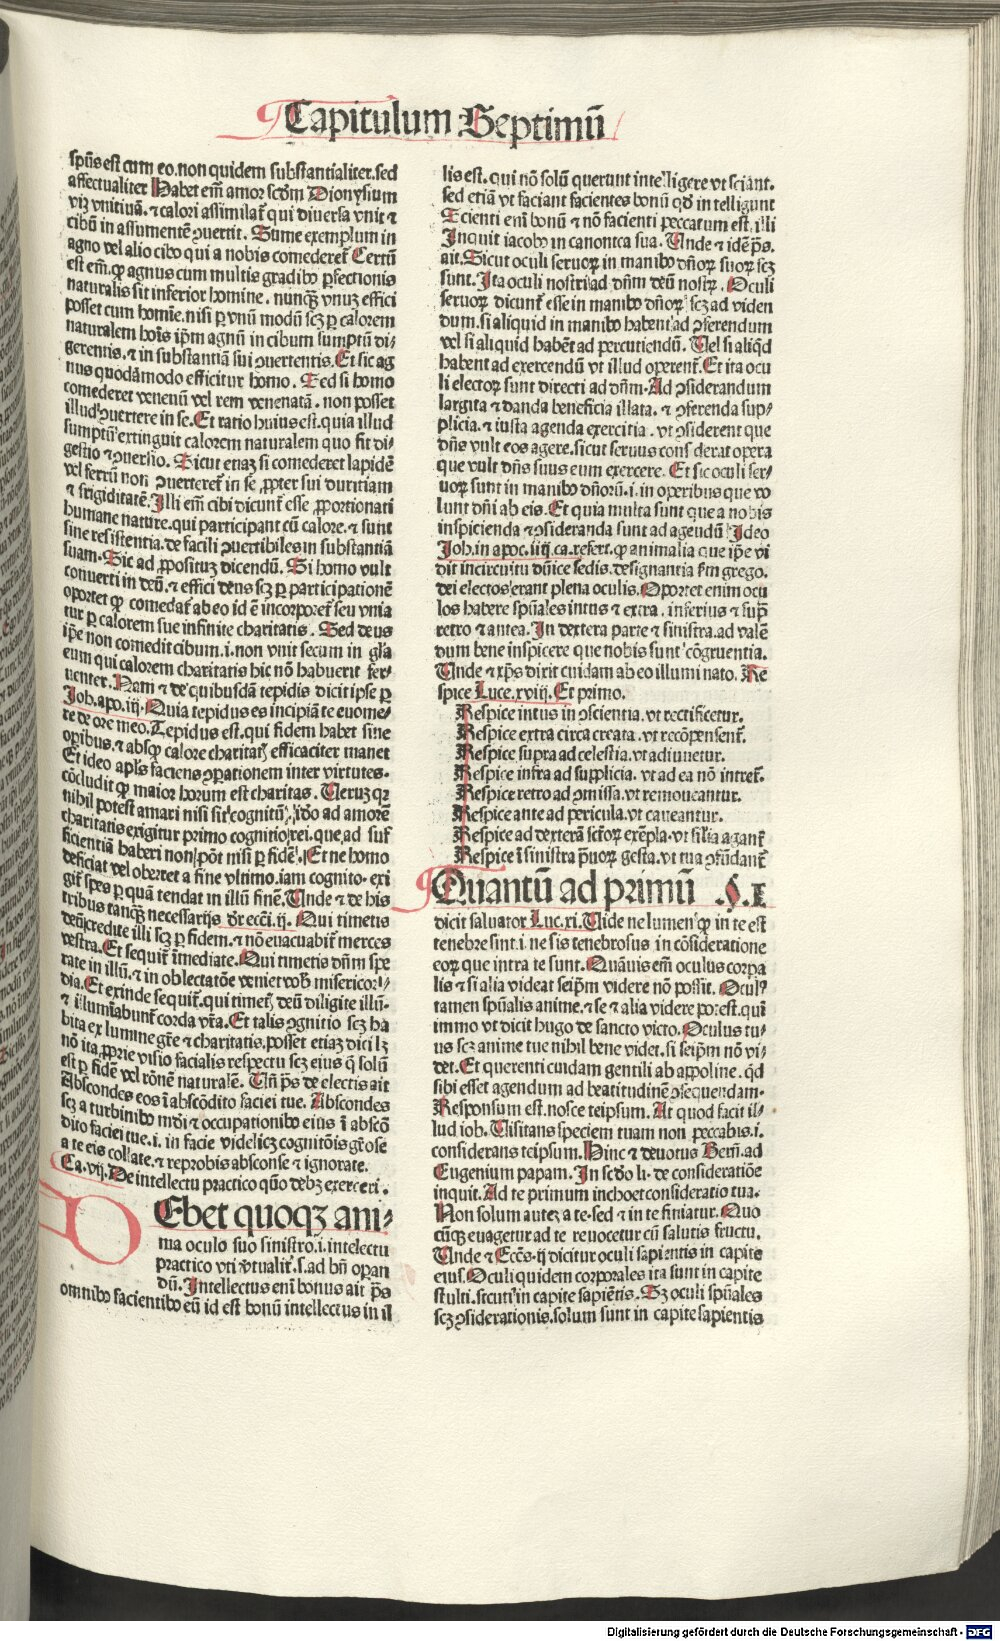 Capitulum Septimū
spūs est cum eo. non quidem substantialiter. sed
affectualiter Habet em̄ amor scd̄m Dionysium
vim vnitiuā. ⁊ calori assimilat᷑ qui diuersa vnit ⁊
cibū in assumentē ꝯuertit. Sume exemplum in
agno vel alio cibo qui a nobis comederet᷑ Certū
est em̄. ꝙ agnus cum multis gradibꝰ ꝑfectionis
naturalis sit inferior homine. nunqꝫ vnuꝫ effici
posset cum homīe. nisi ꝑ vnū modū scꝫ ꝑ calorem
naturalem hoīs ip̄m agnū in cibum sumptū di⸗
gerentis. ⁊ in substantiā sui ꝯuertentis. Et sic ag
nus quodāmodo efficitur homo. Sed si homo
comederet venenū vel rem venenatā. non posset
illud ꝯuertere in se. Et ratio huius est. quia illud
sumptū extinguit calorem naturalem quo fit di⸗
gestio ⁊ ꝯuersio. Sicut etiaꝫ si comederet lapidē
vel ferrū non ꝯuerteret᷑ in se ꝓpter sui duritiam
⁊ frigiditatē. Illi em̄ cibi dicunt᷑ esse ꝓportionati
humane nature. qui participant cū calore. ⁊ sunt
sine resistentia. de facili ꝯuertibiles in substantiā
suam. Sic ad ꝓpositum dicendū. Si homo vult
conuerti in deū. ⁊ effici deus scꝫ ꝑ participationē
oportet ꝙ comedat᷑ ab eo id ē incorporet᷑ seu vnia
tur ꝑ calorem sue infinite charitatis. Sed deus
ip̄e non comedit cibum. i. non vnit secum in gl̄ia
eum qui calorem charitatis hic nō habuerit fer⸗
uenter. Nam ⁊ de quibusdā tepidis dicit ipse ꝑ
Joh. apo. iij. Quia tepidus es incipiā te euome⸗
re de ore meo. Tepidus est. qui fidem habet sine
oꝑibus. ⁊ absqꝫ calore charitatꝭ efficaciter manet
Et ideo apl̄s faciens ꝯparationem inter virtutes.
cōcludit ꝙ maior horum est charitas. Verum qꝛ
nihil potest amari nisi sit cognitū. iō ad amorē
charitatis exigitur primo cognitio rei. que ad suf
ficientiā haberi non pōt nisi ꝑ fidē. Et ne homo
deficiat vel oberret a fine vltimo. iam cognito. exi
git᷑ spes ꝑ quā tendat in illū finē. Unde ⁊ de his
tribus tanqꝫ necessarijs dr̄ ecci. ij. Qui timetis
deū. credite illi scꝫ ꝑ fidem. ⁊ nō euacuabit᷑ merces
vestra. Et sequit᷑ īmediate. Qui timetis dn̄m spe
rate in illū. ⁊ in oblectatōe veniet vob̄ misericor⸗
dia. Et exinde sequit᷑. qui timetꝭ deū diligite illū.
⁊ illumīabunt᷑ corda vr̄a. Et talis ꝯgnitio scꝫ ha
bita ex lumine gr̄e ⁊ charitatis. posset etiaꝫ dici lꝫ
nō ita ꝓprie visio facialis respectu scꝫ eius q̄ solū
est ꝑ fidē vel rōnē naturalē. Un̄ ps̄ de electis ait
Abscondes eos ī abscōdito faciei tue. Abscondes
scꝫ a turbinibꝰ mūdi ⁊ occupationibꝰ eius ī abscō
dito faciei tue. i. in facie videlicꝫ cognitōis gr̄ose
a te eis collate. ⁊ reprobis absconse ⁊ ignorate.
Ca. vij. De intellectu practico quō debꝫ exerceri.
DEbet quoqꝫ ani⸗
ma oculo suo sinistro. i. intellectu
practico vti v̓tualit᷑. s. ad bn̄ operan
dū. Intellectus enī bonus ait ps̄
omnibꝰ facientibꝰ eū id est bonū intellectus in il
lis est. qui nō solū querunt intelligere vt sciant.
sed etiā vt faciant facientes bonū qd̄ intelligunt
Scienti enī bonū ⁊ nō facienti peccatum est illi
Inquit iacobꝰ in canonica sua. Unde ⁊ idē ps̄.
ait. Sicut oculi seruoꝝ in manibꝰ dn̄oꝝ suoꝝ scꝫ
sunt. Ita oculi nostri ad dn̄m deū nostꝝ. Oculi
seruoꝝ dicunt᷑ esse in manibꝰ dn̄oꝝ scꝫ ad viden
dum. si aliquid in manibꝰ habent ad ꝯferendum
vel si aliquid habēt ad percutiendū. Vel si aliqd̄
habent ad exercendū vt illud operent᷑. Et ita ocu
li electoꝝ sunt directi ad dn̄m. Ad ꝯsiderandum
largita ⁊ danda beneficia illata. ⁊ ꝯferenda sup⸗
plicia. ⁊ iusta agenda exercitia. vt ꝯsiderent que
dn̄s vult eos agere. sicut seruus considerat opera
que vult dn̄s suus eum exercere. Et sic oculi ser⸗
uoꝝ sunt in manibꝰ dn̄oꝝ. i. in operibus que vo
lunt dn̄i ab eis. Et quia multa sunt que a nobis
inspicienda ⁊ ꝯsideranda sunt ad agendū Ideo
Joh. in apoc. iiij. ca. refert. ꝙ animalia que ip̄e vi
dit in circuitu dn̄ice sedis. designantia scd̄m grego.
dei electos erant plena oculis. Oportet enim ocu
los habere spūales intus ⁊ extra. inferius ⁊ supͣ
retro ⁊ antea. In dextera parte ⁊ sinistra. ad valē
dum bene inspicere que nobis sunt cōgruentia.
Unde ⁊ xp̄s dixit cuidam ab eo illuminato. Re
spice Luce. xviij. Et primo.
Respice intus in ꝯscientia. vt rectificetur.
Respice extra circa creata. vt recōpensent᷑.
Respice supra ad celestia. vt adiuuetur.
Respice infra ad supplicia. vt ad ea nō intret᷑.
Respice retro ad ꝯmissa. vt remoueantur.
Respice ante ad pericula. vt caueantur.
Respice ad dexterā sctōꝝ exēpla. vt similia agant᷑
Respice ī sinistra prauoꝝ gesta. vt tua ꝯfūdant᷑
Quantū ad primū §. I
dicit saluator Luc. xi. Vide ne lumen ꝙ in te est
tenebre sint. i. ne sis tenebrosus in cōsideratione
eoꝝ que intra te sunt. Quāuis em̄ oculus corpa
lis ⁊ si alia videat seip̄m videre nō possit. Oculꝰ
tamen spūalis anime. ⁊ se ⁊ alia videre potest. qui
immo vt dicit hugo de sancto victo. Oculus tu⸗
us scꝫ anime tue nihil bene videt. si seip̄m nō vi⸗
det. Et querenti cuidam gentili ab appoline. qd̄
sibi esset agendum ad beatitudinē ꝯsequendam.
Responsum est. nosce teipsum. At quod facit il⸗
lud iob. Visitans speciem tuam non peccabis. i.
considerans teipsum. Hinc ⁊ deuotus Bern̄. ad
Eugenium papam. In scd̄o li. de consideratiōe
inquit. Ad te primum inchoet consideratio tua.
Non solum autem a te. sed ⁊ in te finiatur. Quo
cūqꝫ euagetur ad te reuocetur cū salutis fructu.
Unde ⁊ Ecc̄s. ij dicitur oculi sapientis in capite
eius. Oculi quidem corporales ita sunt in capite
stulti. sicuti in capite sapiētis. Sꝫ oculi spūales
scꝫ ꝯsiderationis. solum sunt in capite sapientis
Digitalisierung gefördert durch die Deutsche Forschungsgemeinschaft - DFG